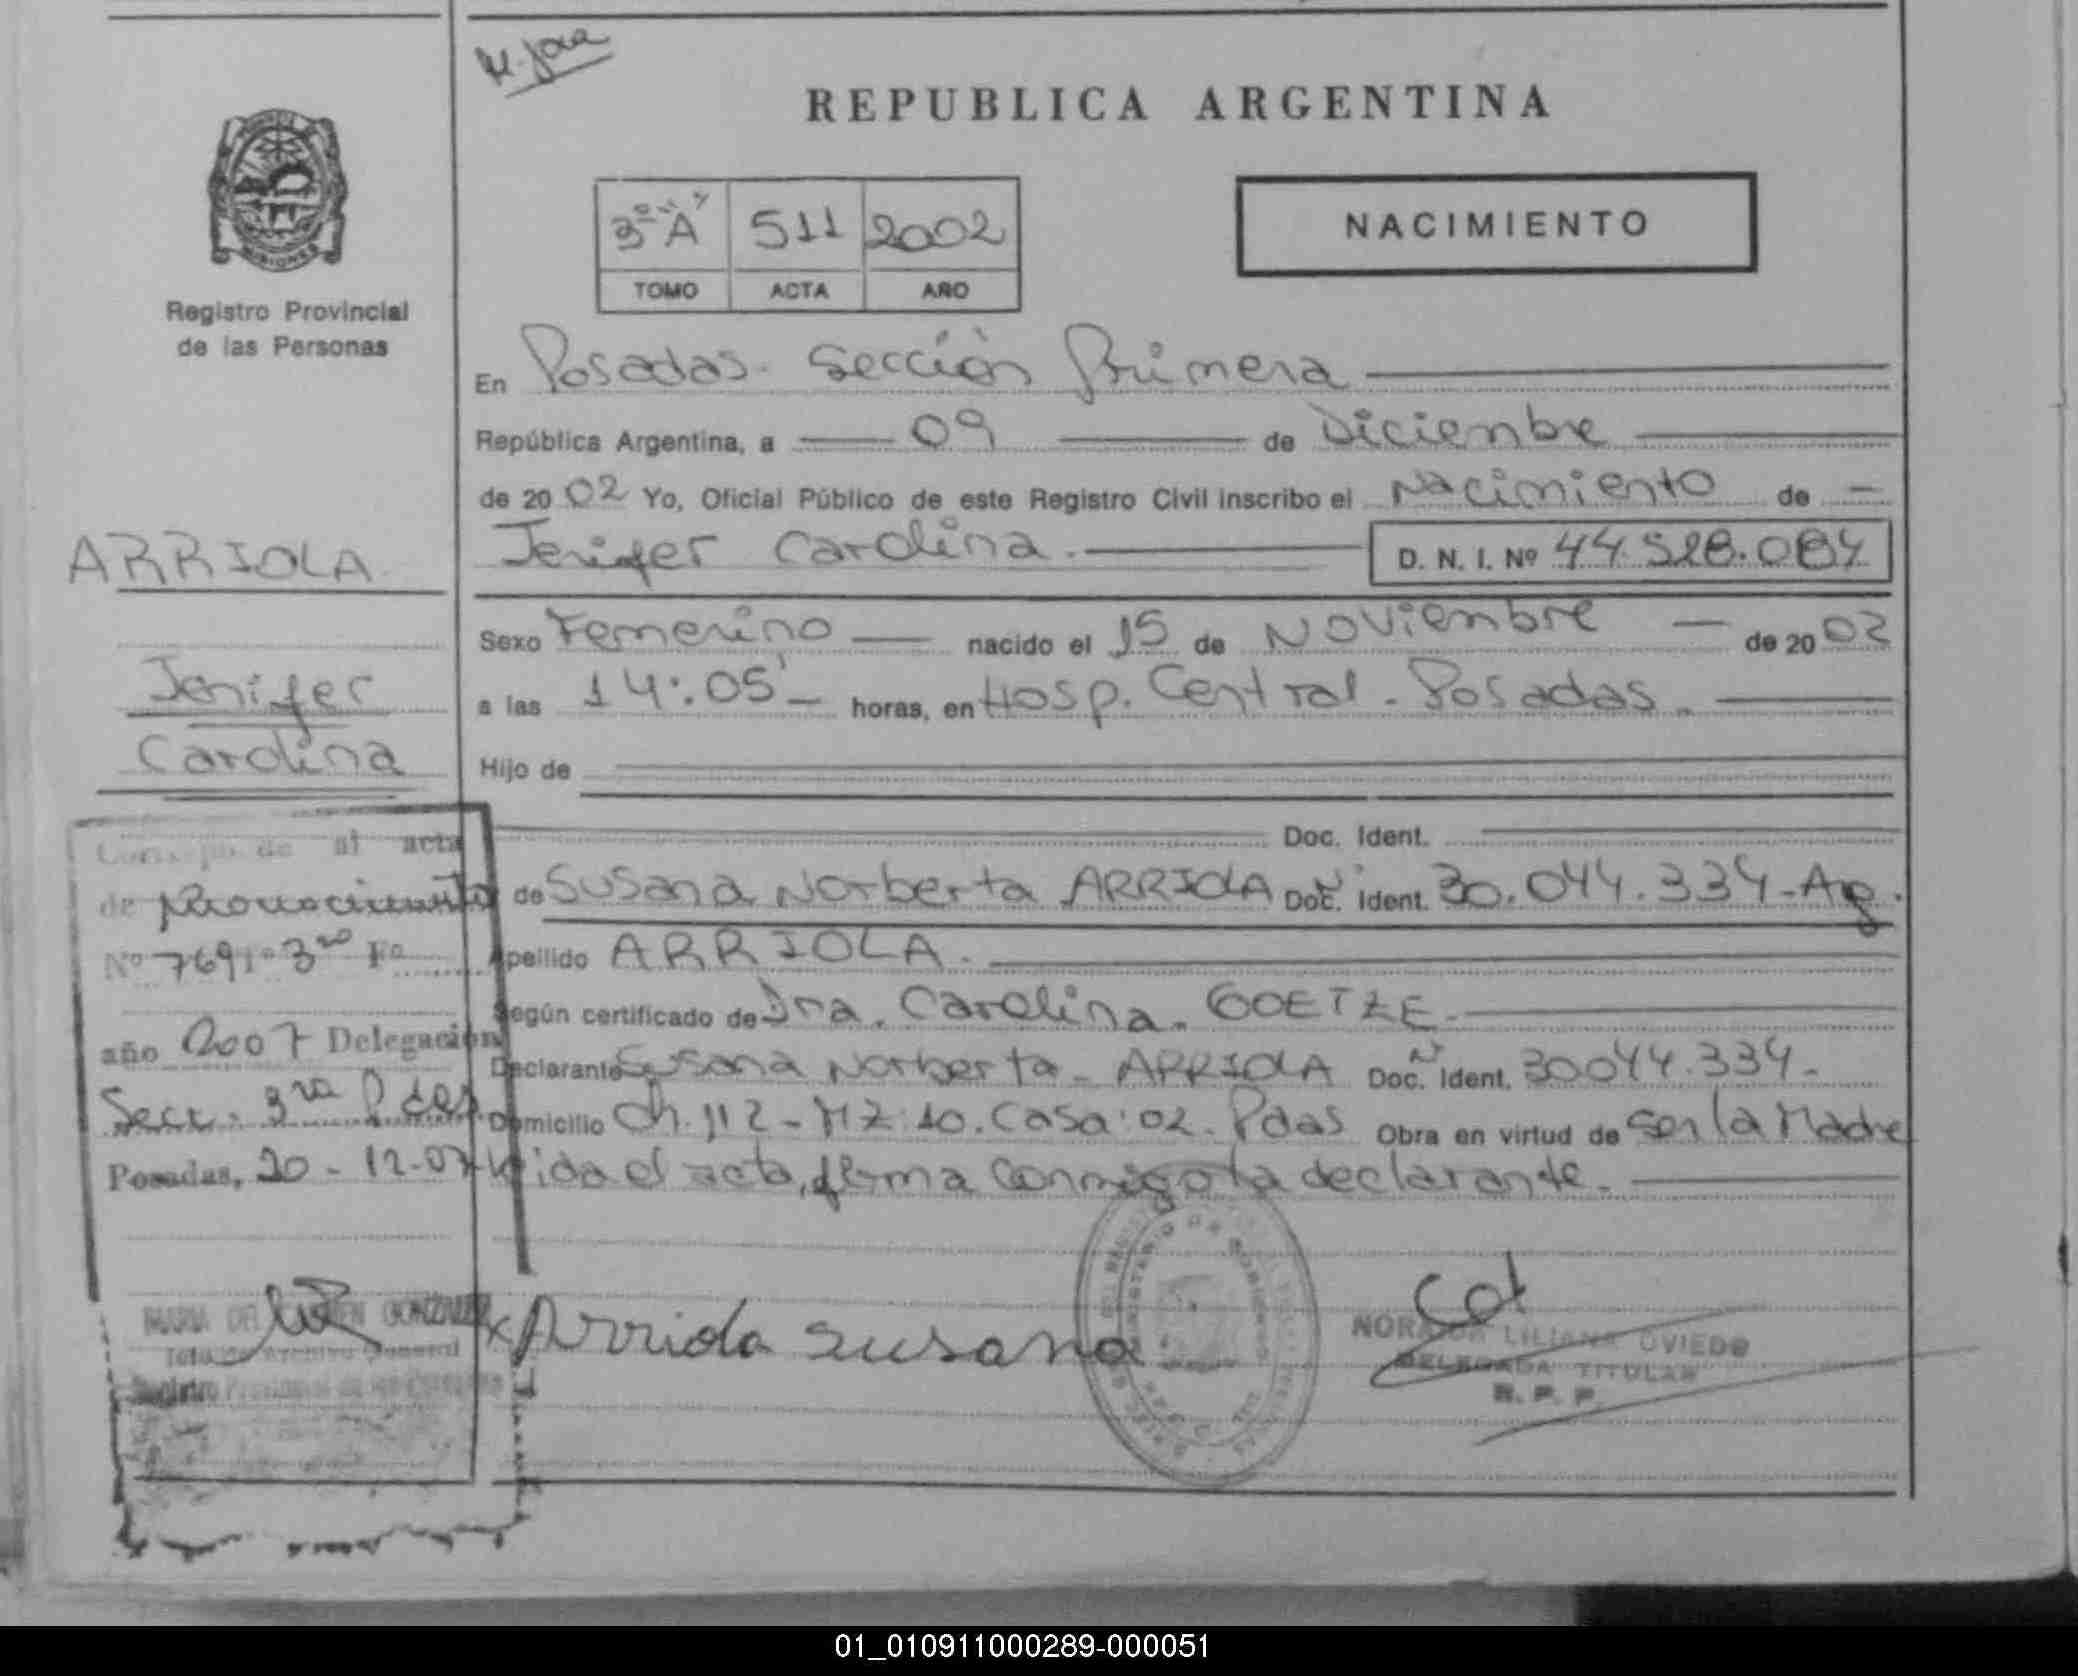 REPUBLICA ARGENTINA
3º "A" 511 2002
TOMO ACTA AÑO
NACIMIENTO
MISIONES
Registro Provincial
de las Personas
En Posadas. Sección Primera
República Argentina, a 09 de Diciembre
de 2002 Yo, Oficial Público de este Registro Civil inscribo el Nacimiento de
Jenifer Carolina. D. N. I. Nº 44.528.084
Sexo Femenino nacido el 15 de Noviembre de 2002
a las 14:05' horas, en Hosp. Central - Posadas.
Hijo de
Doc. Ident.
de Susana Norberta ARRIOLA Doc. Ident. 30.044.334-Ag.
Apellido ARRIOLA.
Según certificado de Dra. Carolina. GOETZE.
Declarante Susana Norberta - ARRIOLA Doc. Ident. 30044.334-
Domicilio Ch. 112 - MZ: 10. Casa: 02. Pdas Obra en virtud de Ser la Madre
Leida el acta, firma conmigo la declarante.
Arriola Susana
NORA LILIANA OVIEDO
DELEGADA TITULAR
R. P. P.
ARRIOLA
Jenifer
Carolina
al acta
de reconocimiento
Nº 7691 Tº 3ro Fº
año 2007 Delegación
Secc. 3ra Pdas.
Posadas, 20-12-07
MARIA DEL CARMEN GONZALEZ
Jefe de Archivo General
Registro Provincial de las Personas
01_010911000289-000051